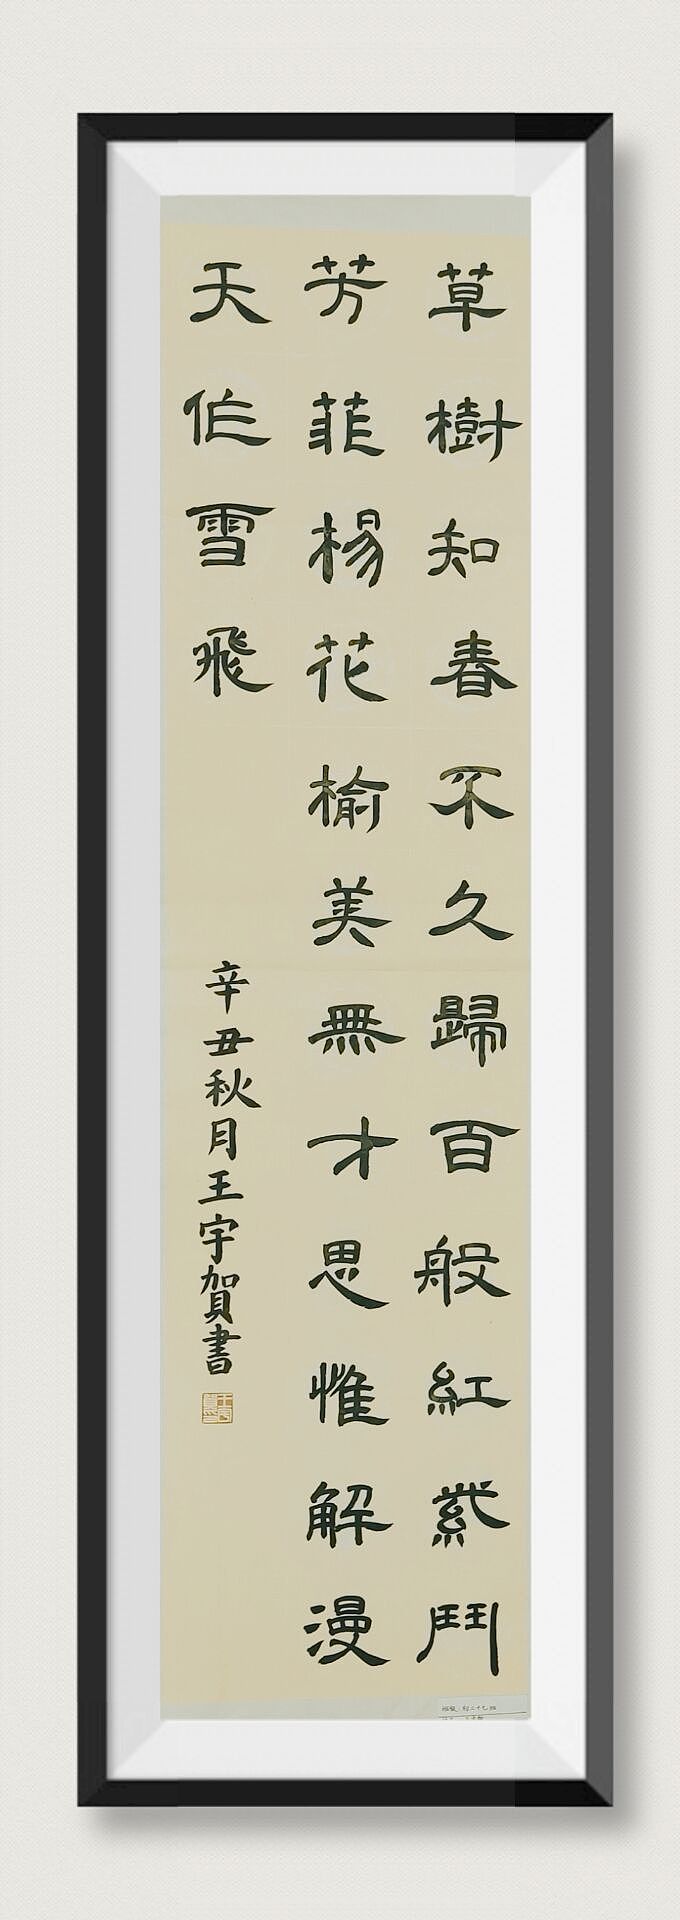 草樹知春不久歸百般紅紫鬥
芳菲楊花榆美無才思惟解漫
天作雪飛
辛丑秋月王宇賀書